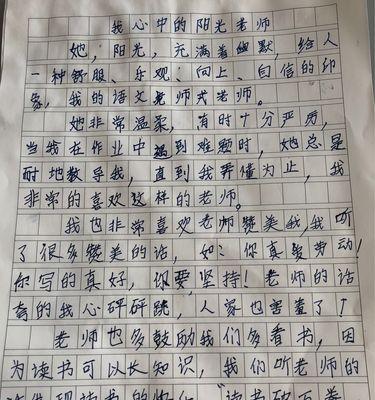 我心中的阳光老师
她,阳光,充满着幽默,给人
一种舒服、乐观、向上、自信的印
象,我的语文老师式老师。
她非常温柔,有时十分严厉,
当我在作业中遇到难题时,她总是
耐地教导我,直到我弄懂为止,我
非常的喜欢这样的老师。
我也非常喜欢老师赞美我,我听
了很多赞美的话,如:你真爱劳动!
你写的真好,你要坚持!老师的话
夸的我心砰砰跳,人家也害羞了!
老师也多鼓励我们多看书,因
为读书可以长知识,我们听老师的
读书的 "读书破万卷